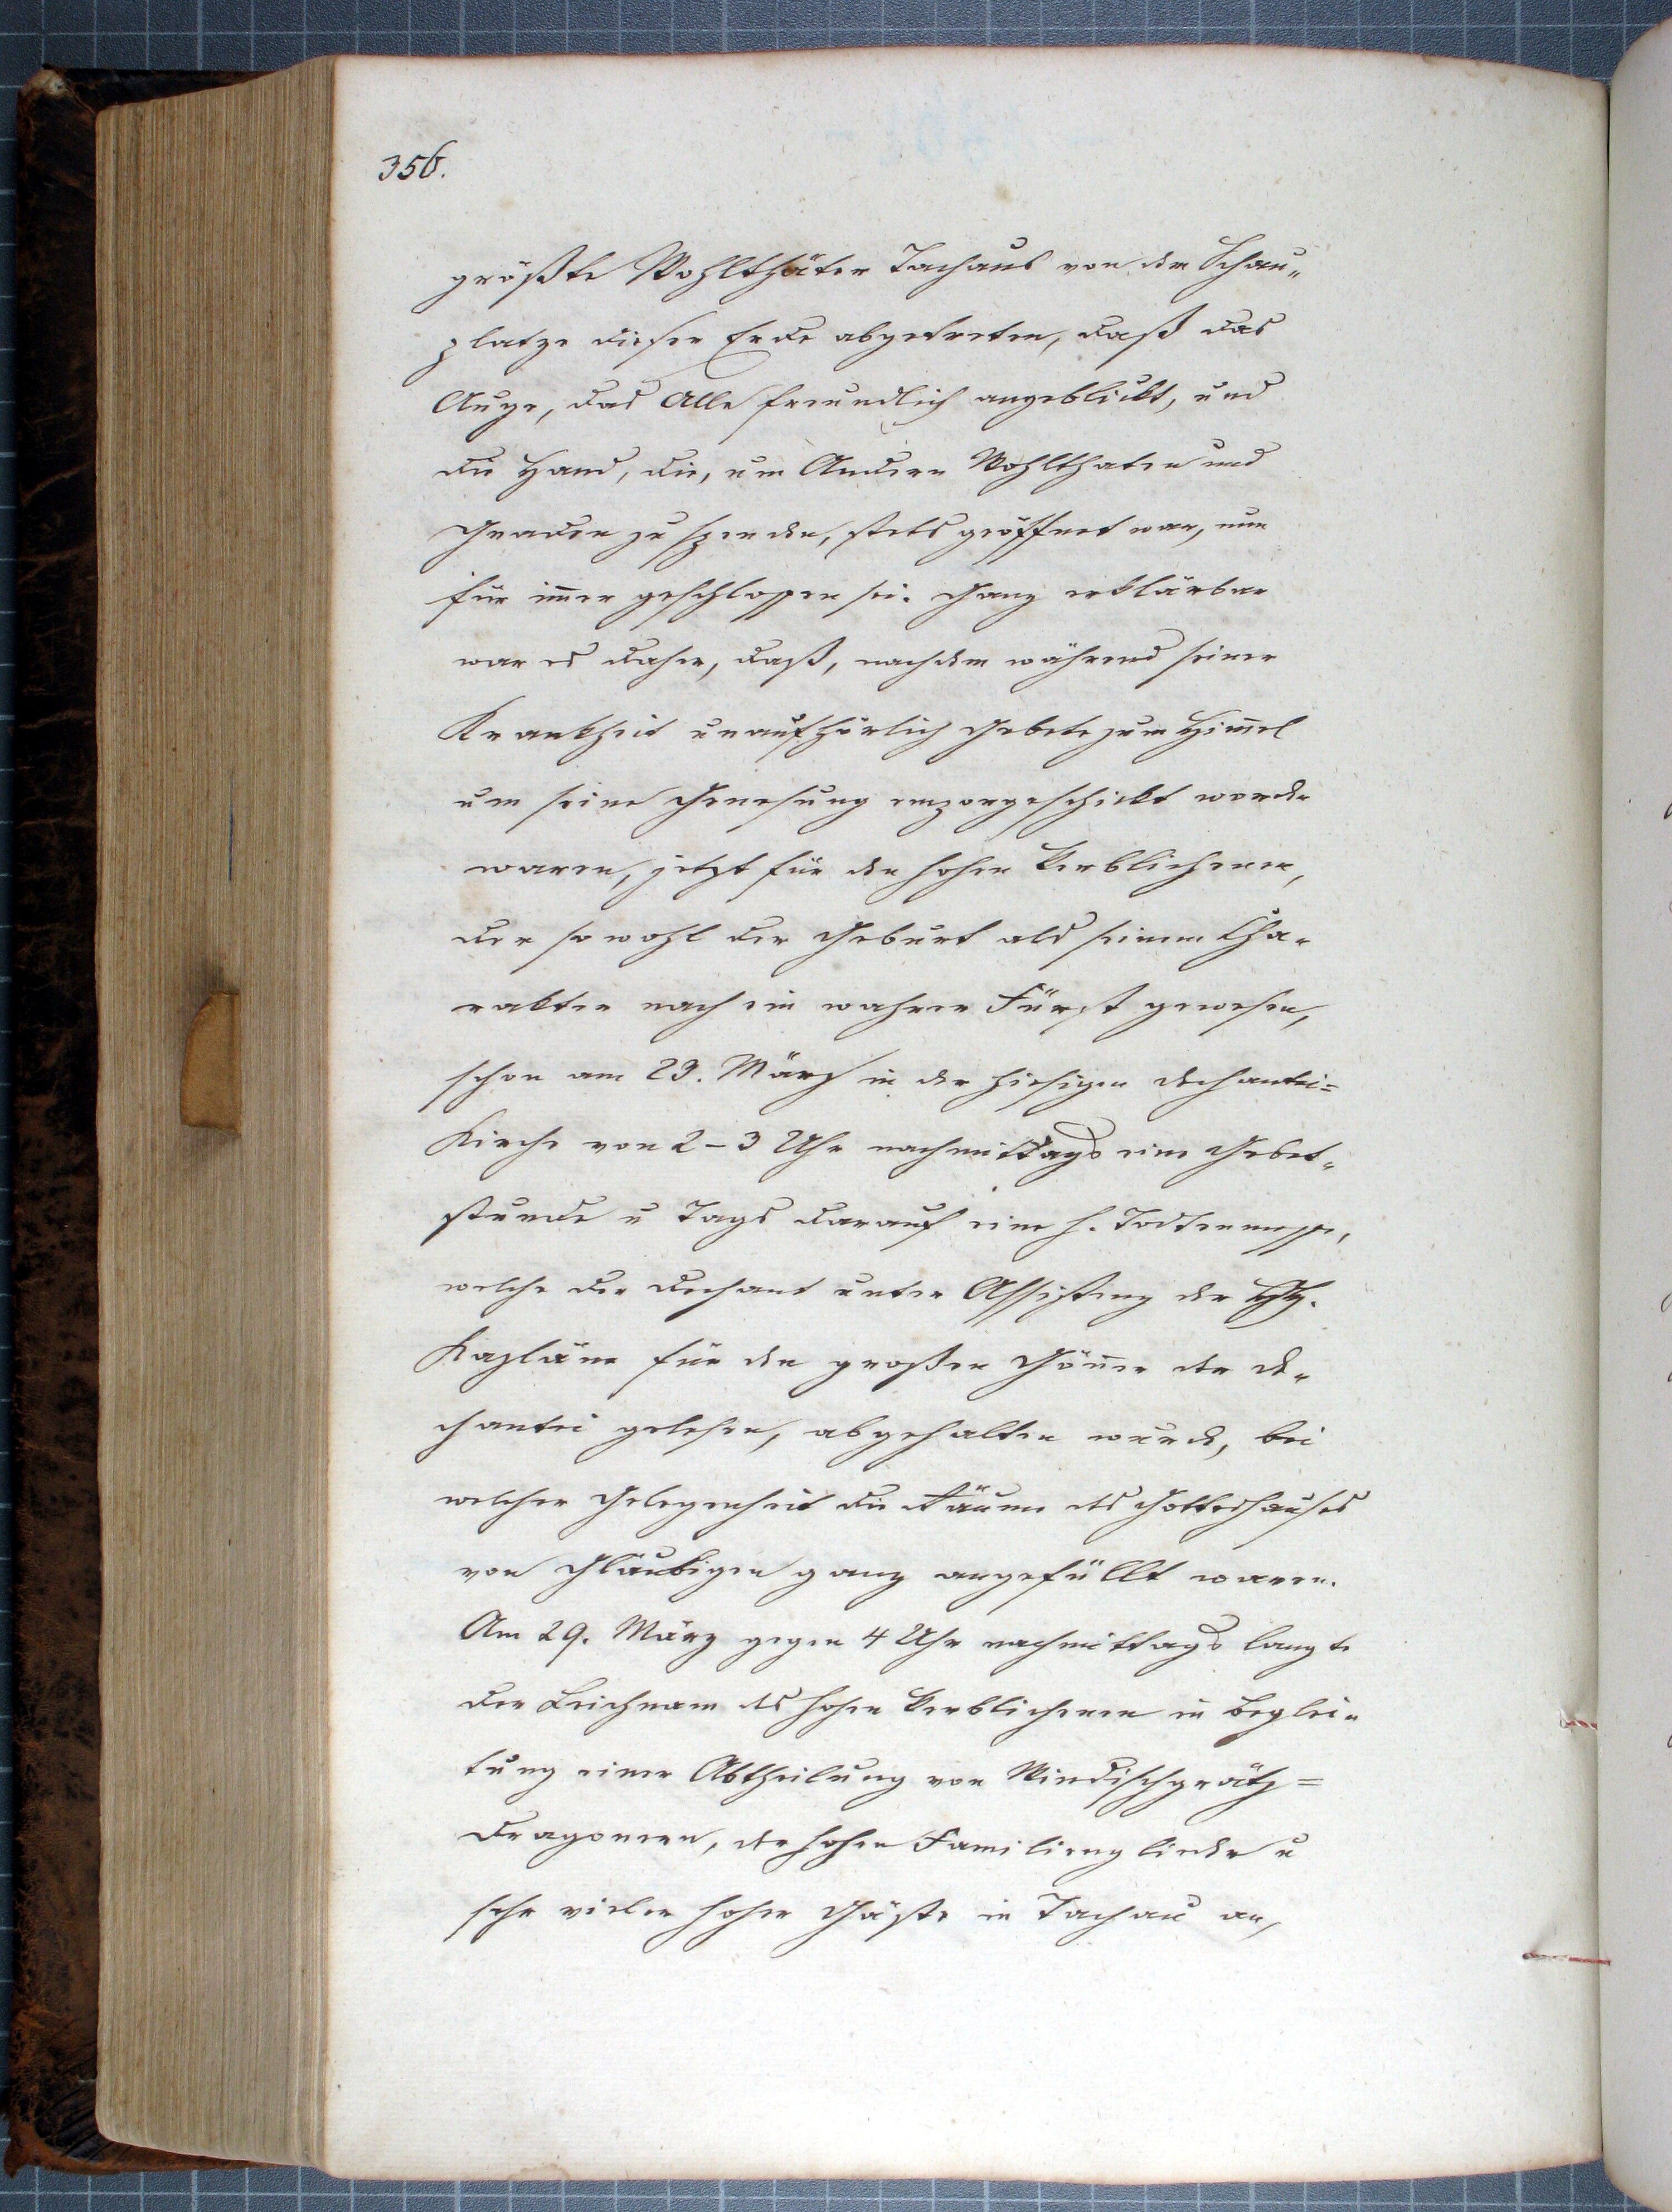 356.
größte Wohlthäter Tachaus von dem Schau„
platze dieser Erde abgetreten, daß das
Auge, das Alle freundlich angeblickt, und
die Hand, die, um Andern Wohlthaten und
Gnaden zu spenden, stets geöffnet war, nun
für im̅er geschlossen sei. Ganz erklärbar
war es daher, daß, nachdem während seiner
Krankheit unaufhörlich Gebete zum Him̅el
um seine Genesung emporgeschickt worden
waren, jetzt für den hohen Verblichenen,
der sowohl der Geburt als seinem Cha„
rakter nach ein wahrer Fürst gewesen,
schon am 23. März in der hiesigen Dechantei=
Kirche von 2–3 Uhr nachmittags eine Gebet„
stunde u Tags darauf eine h. Todtenmesse,
welche der Dechant unter Assistenz der HH.
Kapläne für den großen Gön̅er der De„
chantei gelesen, abgehalten wurde, bei
welcher Gelegenheit die Räume des Gotteshauses
von Gläubigen ganz angefüllt waren.
Am 29. März gegen 4 Uhr nachmittags langte
der Leichnam des hohen Verblichenen in Beglei„
tung einer Abtheilung von Windischgrätz=
Dragonern, der hohen Familienglieder u
sehr vieler hoher Gäste in Tachau an,